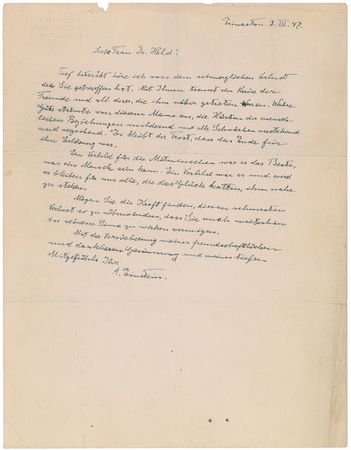 Princeton 3. III. 47.
Liebe Frau Dr. Held!
Tief betrübt höre ich von dem schmerzlichen Verlust
der Sie getroffen hat. Mit Ihnen trauert der Kreis der
Freunde und all derer, die ihm näher getreten waren. Wahre
Güte strömte von diesem Manne aus, die Härten der mensch-
lichen Beziehungen mildernd und alle Schwächen verstehend
und vergebend. Es bleibt der Trost, dass das Ende für
ihn Erlösung war.
Ein Vorbild für die Mitmenschen war er das Beste,
was ein Mensch sein kann. Ein Vorbild war er und wird
es bleiben für uns alle, die das Glück hatten, ihm nahe
zu stehen.
Mögen Sie die Kraft finden, diesen schwersten
Verlust so zu überwinden, dass Sie auch weiterhin
in seinem Sinne zu wirken vermögen.
Mit der Versicherung meiner freundschaftlichen
und dankbaren Gesinnung und meines tiefen
Mitgefühls Ihr
A. Einstein.